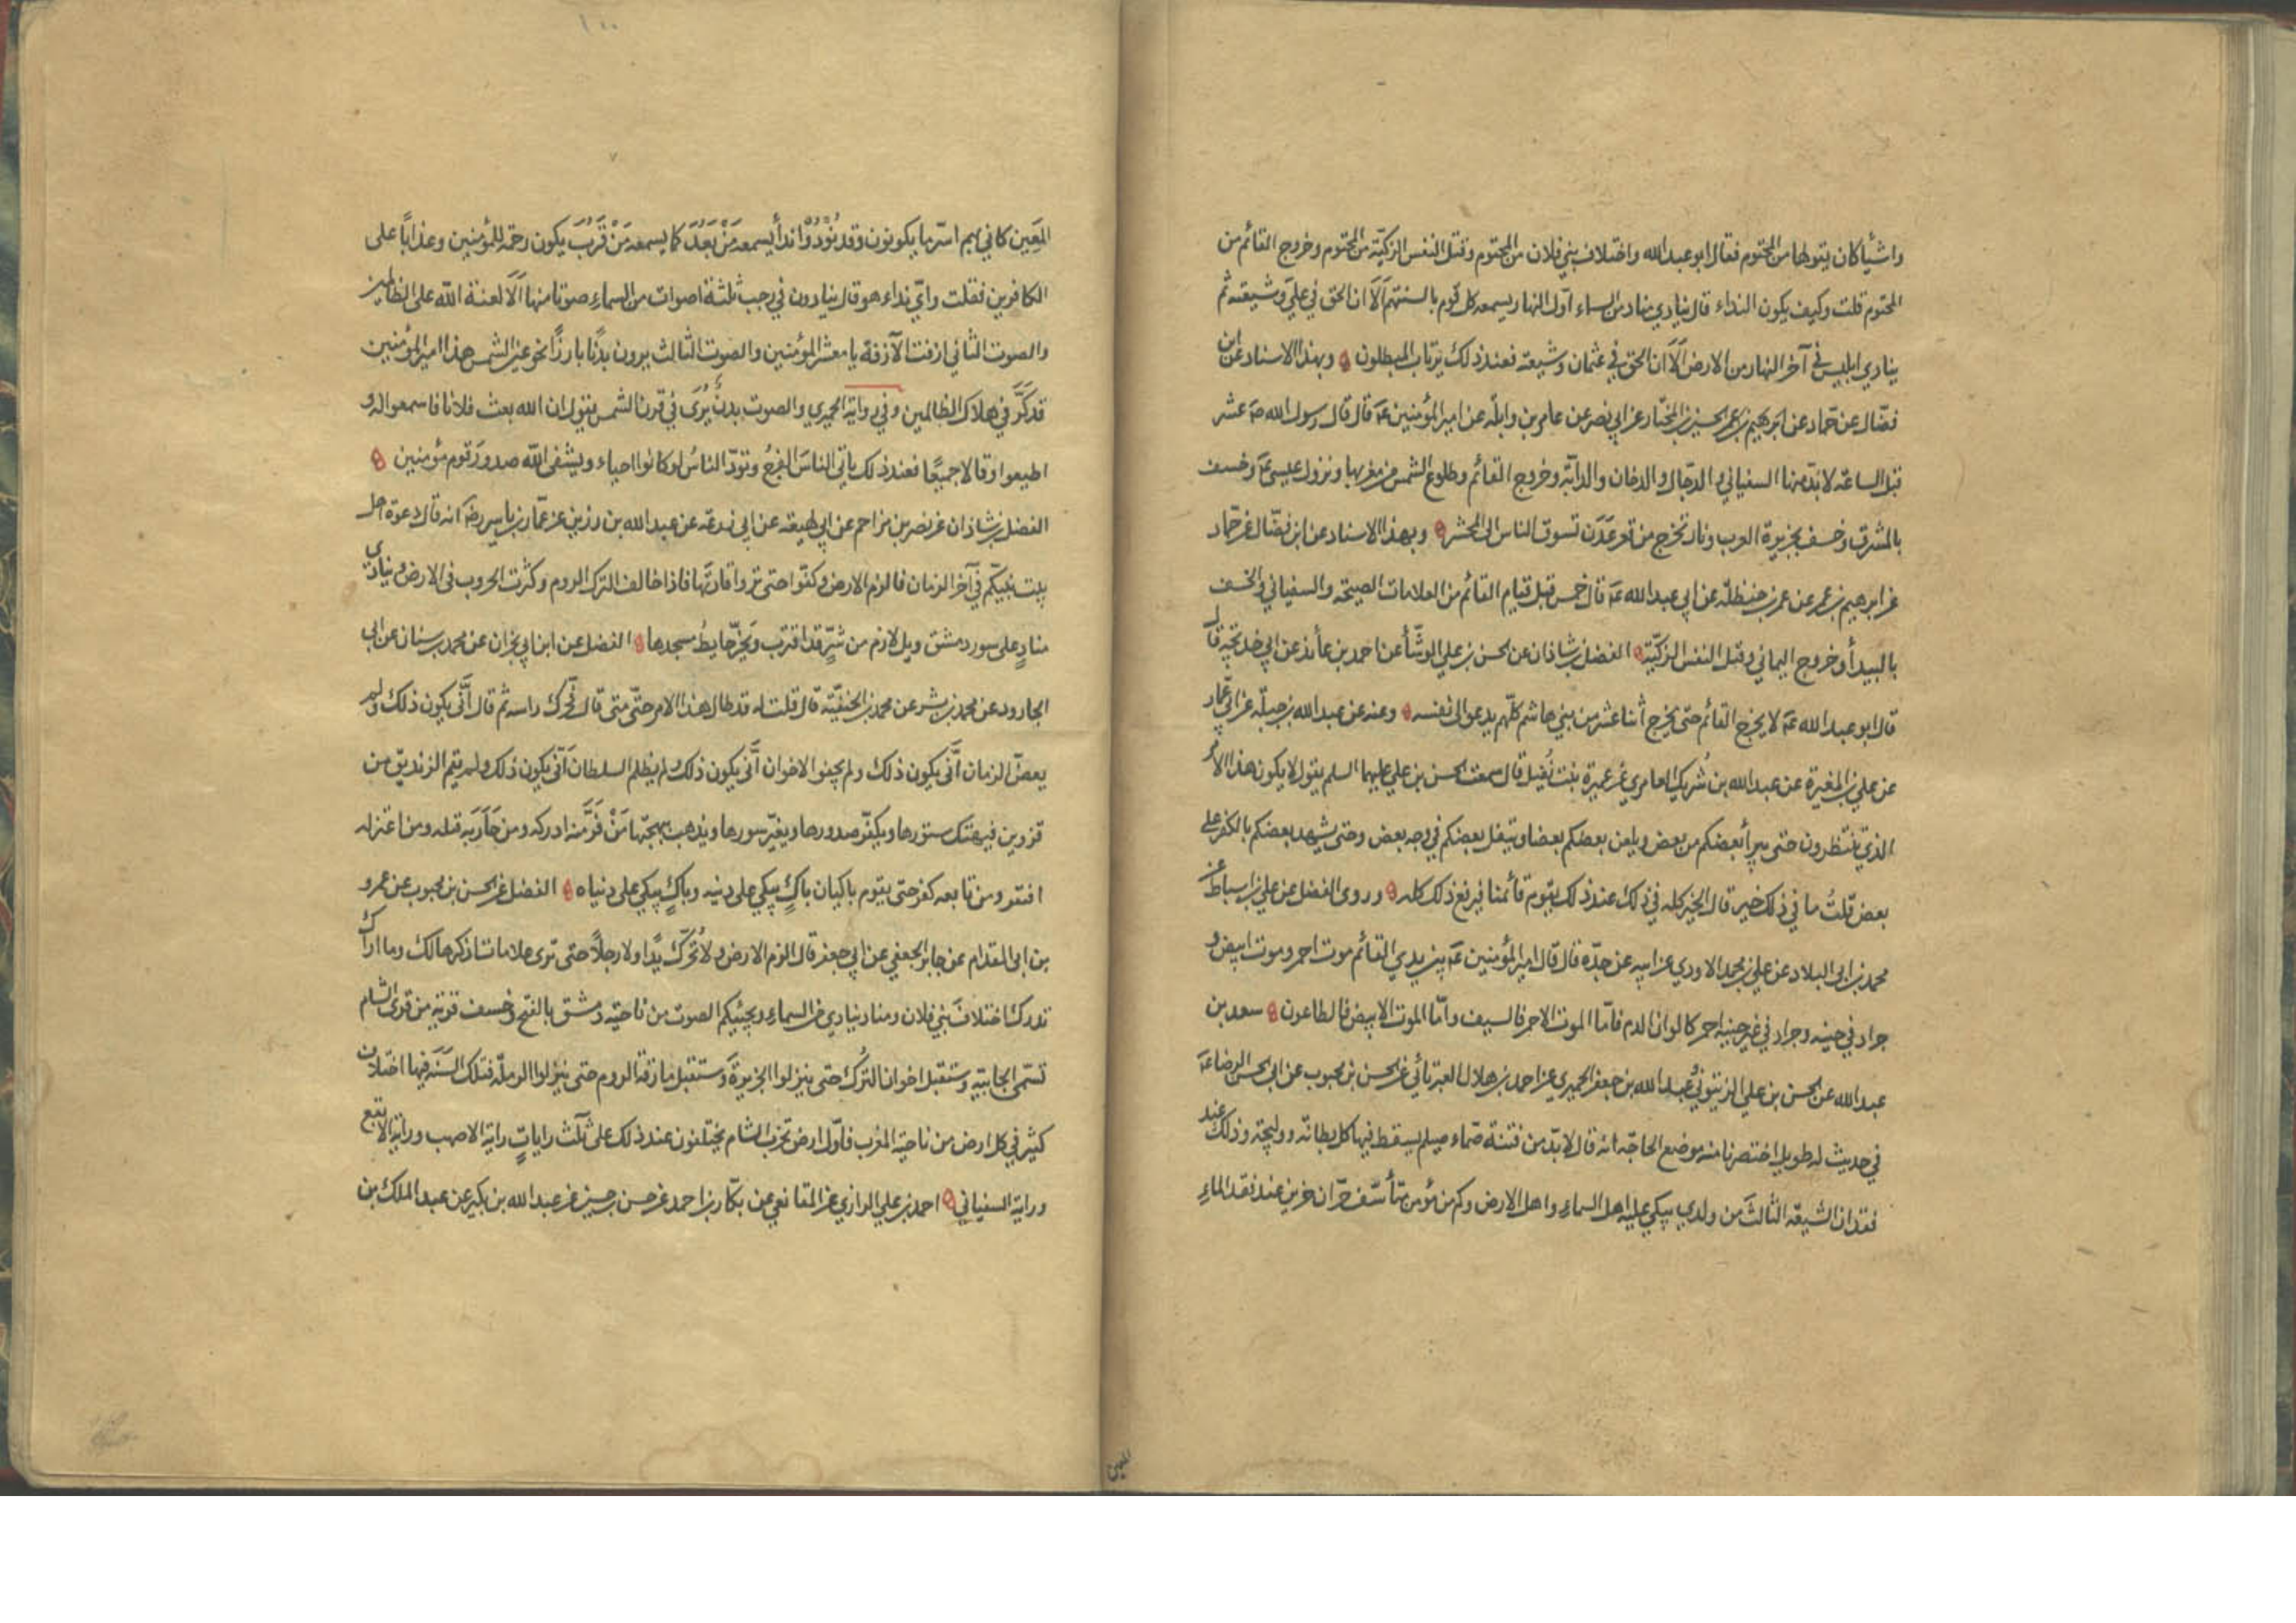 واشياء كان يقولها من المحتوم فقال ابو عبد الله واختلاف بني فلان من المحتوم وقتل النفس الزكيّة من المحتوم وخروج القائم من
المحتوم قلت وكيف يكون النداء قال ينادي مناد من السماء اوّل النهار يسمعه كل قوم بالسنتهم اَلَا ان الحق في عليّ وشيعته ثم
ينادي ابليس في آخر النهار من الارض اَلَا ان الحق في عثمان وشيعته فعند ذلك يرتاب المبطلون وبهذا الاسناد عن ابن
فضّال عن حمّاد عن ابرهيم بن عمر الحسين بن المختار عن ابي نصر عن عامر بن واثلة عن امير المؤمنين عَه قال قال رسول الله صَه عشر
قبل الساعة لا بدّ منها السفياني والدجّال والدخان والدابّة وخروج القائم وطلوع الشمس من مغربها ونزول عيسى عَه وخسف
بالمشرق وخسف بجزيرة العرب ونار تخرج من قعر عَدَن تسوق الناس الى المحشر وبهذا الاسناد عن ابن فضّال عن حمّاد
عن ابرهيم بن عمر عن عمر بن حنظلة عن ابي عبد الله عَه قال خمس قبل قيام القائم من العلامات الصيحة والسفياني والخسف
بالبيدأ وخروج اليماني وقتل النفس الزكيّة الفضل بن شاذان عن الحسن بن علي الوشّأ عن احمد بن عائذ عن ابي خديجة قال
قال ابو عبد الله عَه لا يخرج القائم حتى يخرج اثنا عشر من بني هاشم كلّهم يدعو الى نفسه وعنه عن عبد الله بن جبلّة عن ابي عمّار
عن علي بن المغيرة عن عبد الله بن شُريك العامري عن عميرة بنت نُفيل قال سمعت الحسن بن علي عليهما السلم يقول لا يكون هذا الامر
الذي تنتظرون حتى يبرأ بعضكم من بعض ويلعن بعضكم بعضا ويتفل بعضكم في وجه بعض وحتى يشهد بعضكم بالكفر على
بعض قلتُ ما في ذلك خير قال الخير كله في ذلك عند ذلك يقوم قائمنا فيرفع ذلك كله وروى الفضل عن علي بن اسباط عن
محمد بن ابي البلاد عن علي بن محمد الاودي عن ابيه عن جدّه قال قال امير المؤمنين عَه بين يدي القائم موت احمر وموت ابيض و
جراد في حينه وجراد في غير حينه احمر كالوان الدم فامّا الموت الاحمر فالسيف وامّا الموت الابيض فالطاعون سعد بن
عبد الله عن الحسن بن علي الزيتونيّ وعبد الله بن جعفر الحميري عن احمد بن هلال العبرتائي عن الحسن بن محبوب عن ابي الحسن الرضا عَه
في حديث له طويل اختصرنا منه موضع الحاجّة انه قال لا بدّ من فتنة صمّاء صيلم يسقط فيها كل بطانة ووليجة وذلك عند
فقدان الشيعة الثالثَ من ولدي يبكي عليه اهل السماءِ واهل الارض وكم من مؤمن متأسّف حرّان حزين عند فقد الماءِ
المعين
المَعِين كاني بهم اسرّ ما يكونون وقد نُودُوا نداأً يسمعه مَنْ بَعُدَ كما يسمعه مَنْ قَرُبَ يكون رحمة للمؤمنين وعذاباً على
الكافرين فقلت وايّ نداء هو قال ينادون في رجب ثلثة اصوات من السماءِ صوتا منها اَلَا لعنة الله على الظالمين
والصوت الثاني ازفت الآزفة يا معشر المؤمنين والصوت الثالث يرون بدنًا بارزًا نحو عين الشمس هذا امير المؤمنين
قد كَرَّ في هلاك الظالمين وفي رواية الحميري والصوت بدنٌ يُرَى في قرن الشمس يقول ان الله بعث فلانا فاسمعوا له و
اطيعوا وقالا جميعًا فعند ذلك ياتي الناسَ الفرجُ وتودّ الناسُ لو كانوا احياء ويشفى الله صدورَ قوم مؤمنين
الفضل بن شاذان عن نصر بن مزاحم عن ابي لهيعة عن ابي زرعة عن عبد الله بن رزين عن عمّار بن ياسر رضَه انه قال دعوة اهل
بيت نبيّكم في آخر الزمان فالزم الارض وكفّوا حتى تروا قادتَها فاذا خالف الترك الروم وكثرت الحروب في الارض وينادي
منادٍ على سور دمشق ويل لازم من شرٍّ قد اقترب ويخرّ حايطُ مسجدها الفضل عن ابن ابي نجران عن محمد بن سنان عن ابي
الجارود عن محمد بن بشر عن محمد بن الحنفيّة قال قلت له قد طال هذا الامر حتّى متى قال فحّرك راسه ثم قال اَنّى يكون ذلك ولم
يعضّ الزمان اَنّى يكون ذلك ولم يجفوا الاخوان اَنّى يكون ذلك ولم يظلم السلطان اَنّى يكون ذلك ولم يقم الزنديق من
قزوين فيهتك ستورها ويكفّر صدورها ويغيّر سورها ويذهب ببهجتها مَنْ فَرَّ منه ادركه ومن حَارَبه قتله ومن اعتزله
افتقر ومن تابعه كفر حتى يقوم باكيان باكٍ يبكي على دينه وباكٍ يبكي على دنياه الفضل عن الحسن بن محبوب عن عمرو
بن ابي المقدام عن جابر الجعفي عن ابي جعفر قال الزم الارض ولا تُحرّك يدًا ولا رجلًا حتى ترى علامات اذكرها لك وما اراك
تدرك اختلافَ بني فلان ومناد ينادي من السماءِ ويجيئكم الصوت من ناحية دمشق بالفتح وخسف قرية من قرى الشام
تسمّى الجابية وستقبل اخوان التُرك حتى ينزلوا الجزيرة وستقبل مازقة الروم حتى ينزلوا الرملة فتلك السَنَة فيها اختلاف
كثير في كل ارض من ناحية المغرب فاوّل ارض تخرب الشام يختلفون عند ذلك على ثلث راياتٍ راية الاصهب وراية الابقع
وراية السفياني احمد بن علي الرازي عن المقانعي عن بكّار بن احمد عن حسن بن حسين عن عبد الله بن بكير عن عبد الملك بن